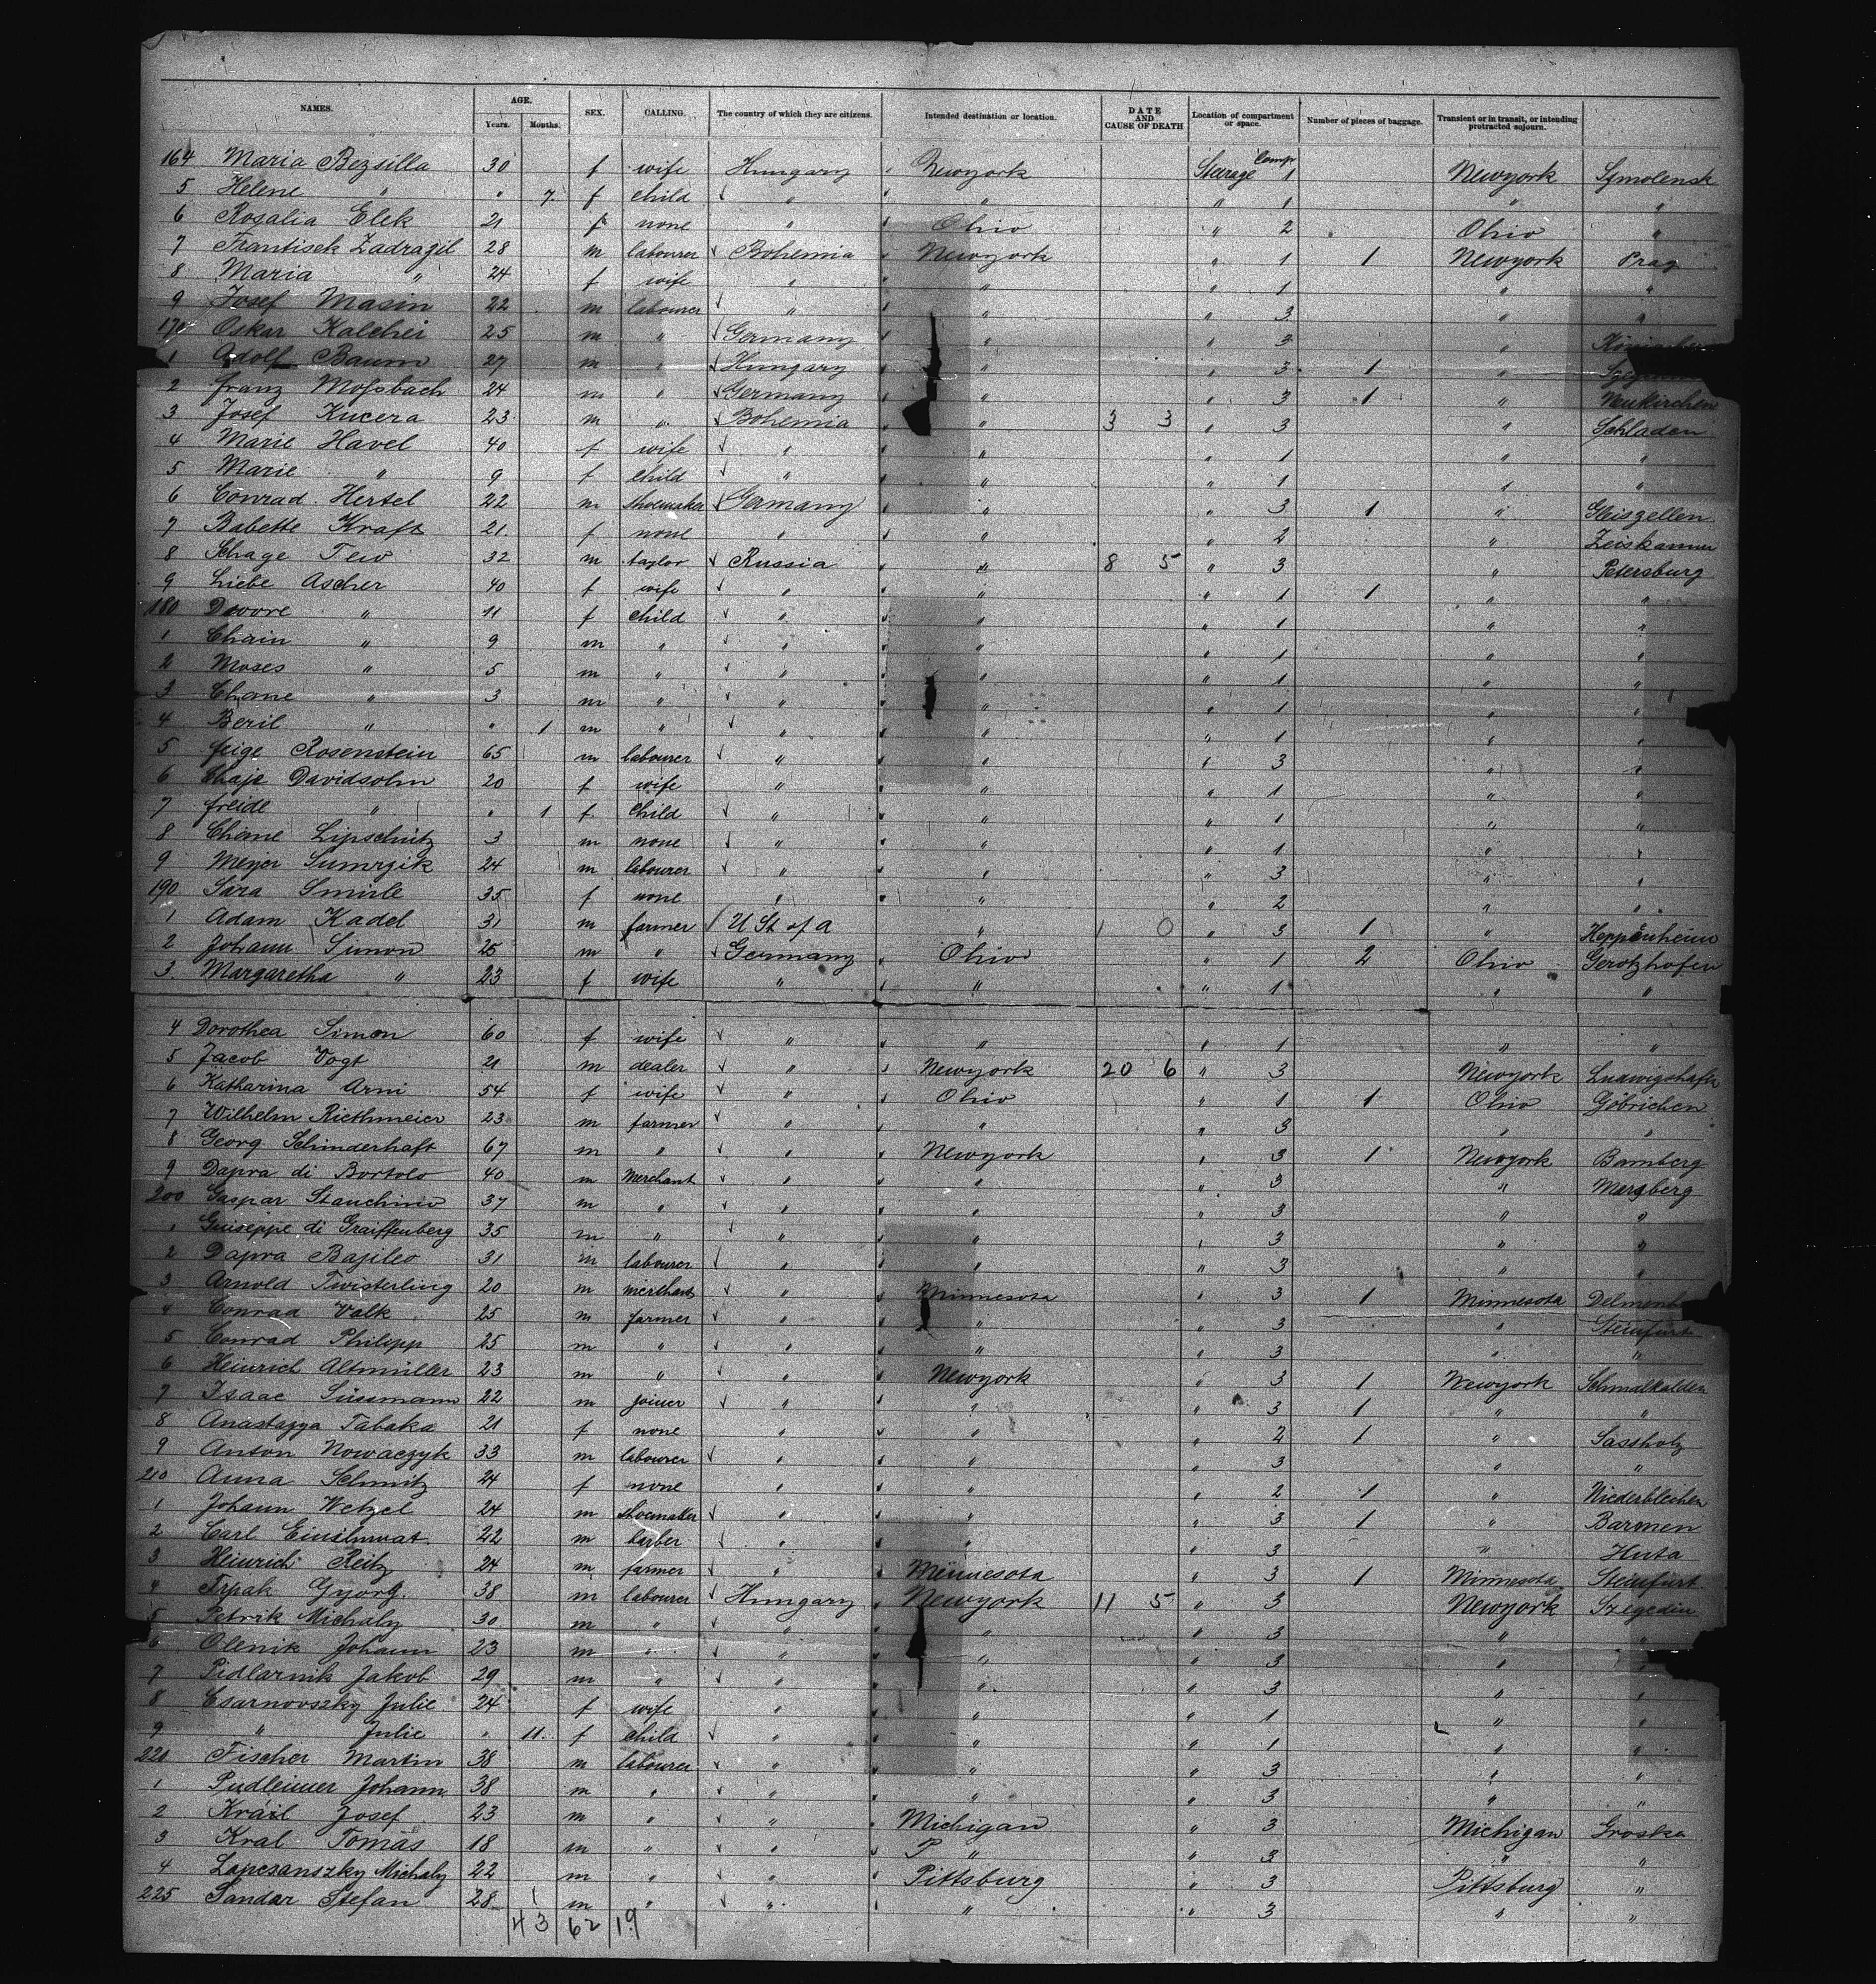 NAMES. AGE. SEX. CALLING. The country of which they are citizens. Intended destination or location. DATE AND CAUSE OF DEATH Location of compartment or space. Number of pieces of baggage. Transient or in transit, or intending protracted sojourn.
Years. Months.
164 Maria Bezsilla 30 f wife Hungary Newyork Steerage Comp 1 Newyork Szmolensk
5 Helene " " 7. f child " " " 1 " "
6 Rosalia Elek 21 f none " Ohio " 2 Ohio "
7 Frantisek Zadrazil 28 m labourer Bohemia Newyork " 1 1 Newyork Prag
8 Maria " 24 f wife " " " 1 " "
9 Josef Masin 22 m labourer " " " 3 " "
170 Oskar Kalchei 25 m " Germany " " 3 "
1 Adolf Baum 27 m " Hungary " " 3 1 "
2 Franz Mossbach 24 m " Germany " " 3 1 " Neukirchen
3 Josef Kucera 23 m " Bohemia " 3 3 " 3 " Schladen
4 Marie Havel 40 f wife " " " 1 " "
5 Marie " 9 f child " " " 1 " "
6 Conrad Hertel 22 m shoemaker Germany " " 3 1 " Gleiszellen
7 Babette Kraft 21. f none " " " 2 " Zeiskamm
8 Schage Tew 32 m taylor Russia " 8 5 " 3 " Petersburg
9 Liebe Ascher 40 f wife " " " 1 1 " "
180 Dwore " 11 f child " " " 1 " "
1 Chain " 9 m " " " " 1 " "
2 Moses " 5 m " " " " 1 " "
3 Chane " 3 m " " " " 1 " "
4 Beril " " 1 m " " " " 1 " "
5 Feige Rosenstein 65 m labourer " " " 3 " "
6 Chaje Davidsohn 20 f wife " " " 1 " "
7 Freide " " 1 f child " " " 1 " "
8 Chone Lipschütz 3 m none " " " 1 " "
9 Meyer Sumrzik 24 m labourer " " " 3 " "
190 Sara Smirle 35 f none " " " 2 " "
1 Adam Kadel 31 m farmer U St of A " 1 0 " 3 1 " Heppenheim
2 Johann Simon 25 m " Germany Ohio " 1 2 Ohio Gerolzhofen
3. Margaretha " 23 f wife " " " 1 " "
4 Dorothea Simon 60 f wife " " " 1 " "
5 Jacob Vogt 21 m dealer " Newyork 20 6 " 3 Newyork Ludwigshafen
6 Katharina Arni 54 f wife " Ohio " 1 1 Ohio Göbrichen
7 Wilhelm Riethmeier 23 m farmer " " " 3 " "
8 Georg Schinderhaft 67 m " " Newyork " 3 1 Newyork Bamberg
9 Dapra di Bortolo 40 m Merchant " " " 3 " Marsberg
200 Gaspar Stanchino 37 m " " " " 3 " "
1 Guiseppe di Graiffenberg 35 m " " " " 3 " "
2 Dapra Basileo 31 m labourer " " " 3 " "
3 Arnold Twisterling 20 m merchant " Minnesota " 3 1 Minnesota
4 Conrad Valk 25 m farmer " " " 3 " Steinfurt
5 Conrad Philipp 25 m " " " " 3 " "
6 Heinrich Altmüller 23 m " " Newyork " 3 1 Newyork Schmalkalden
7 Isaac Süssmann 22 m joiner " " " 3 1 " "
8 Anastazya Tabaka 21 f none " " " 2 1 " Sassholz
9 Anton Nowaczyk 33 m labourer " " " 3 " "
210 Anna Schmitz 24 f none " " " 2 1 " Niederblechen
1 Johann Wetzel 24 m shoemaker " " " 3 1 " Barmen
2 Carl 22 m barber " " " 3 " Huta
3 Heinrich Reitz 24 m farmer " Minnesota " 3 1 Minnesota Steinfurt
4 Trpak Gyorg. 38 m labourer Hungary Newyork 11 5 " 3 Newyork Szegedin
5 Petrik Michaly 30 m " " " " 3 " "
6 Olenik Johann 23 m " " " " 3 " "
7 Pidlarnik Jakob 29 m " " " " 3 " "
8 Csarnovszky Julie 24 f wife " " " 1 " "
9 " Julie " 11. f child " " " 1 " "
220 Fischer Martin 38 m labourer " " " 3 " "
1 Pudleiner Johann 38 m " " " " 3 " "
2 Král Josef 23 m " " Michigan " 3 Michigan Groska
3 Kral Tomas 18 m " " P " " 3 " "
4 Lapcsanszky Michaly 22 m " " Pittsburg " 3 Pittsburg "
225 Sandor Stefan 28 m " " " " 3 " "
1
43 62 19